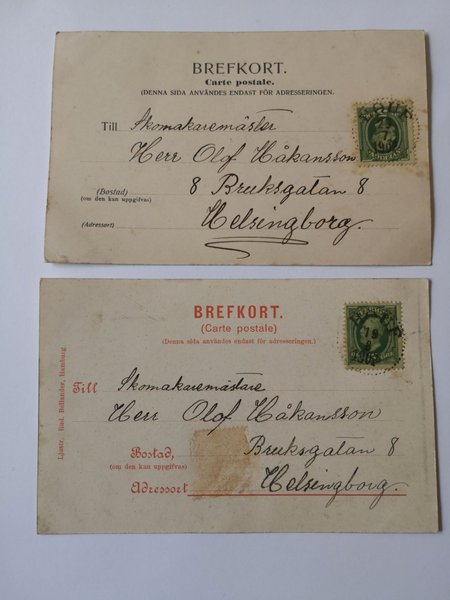 BREFKORT.
Carte postale.
(DENNA SIDA ANVÄNDES ENDAST FÖR ADRESSERINGEN.
Till Skomakaremäster
Herr Olof Håkansson
8 Bruksgatan 8
(Bostad)
(om den kan uppgifvas)
Helsingborg.
(Adressort)
BREFKORT.
(Carte postale)
(Denna sida användes endast för adresseringen.)
Till Skomakaremästare
Herr Olof Håkansson
Bostad, Bruksgatan 8
(om den kan uppgifvas)
Adressort Helsingborg.
Ljustr. Rud. Bellander, Hamburg